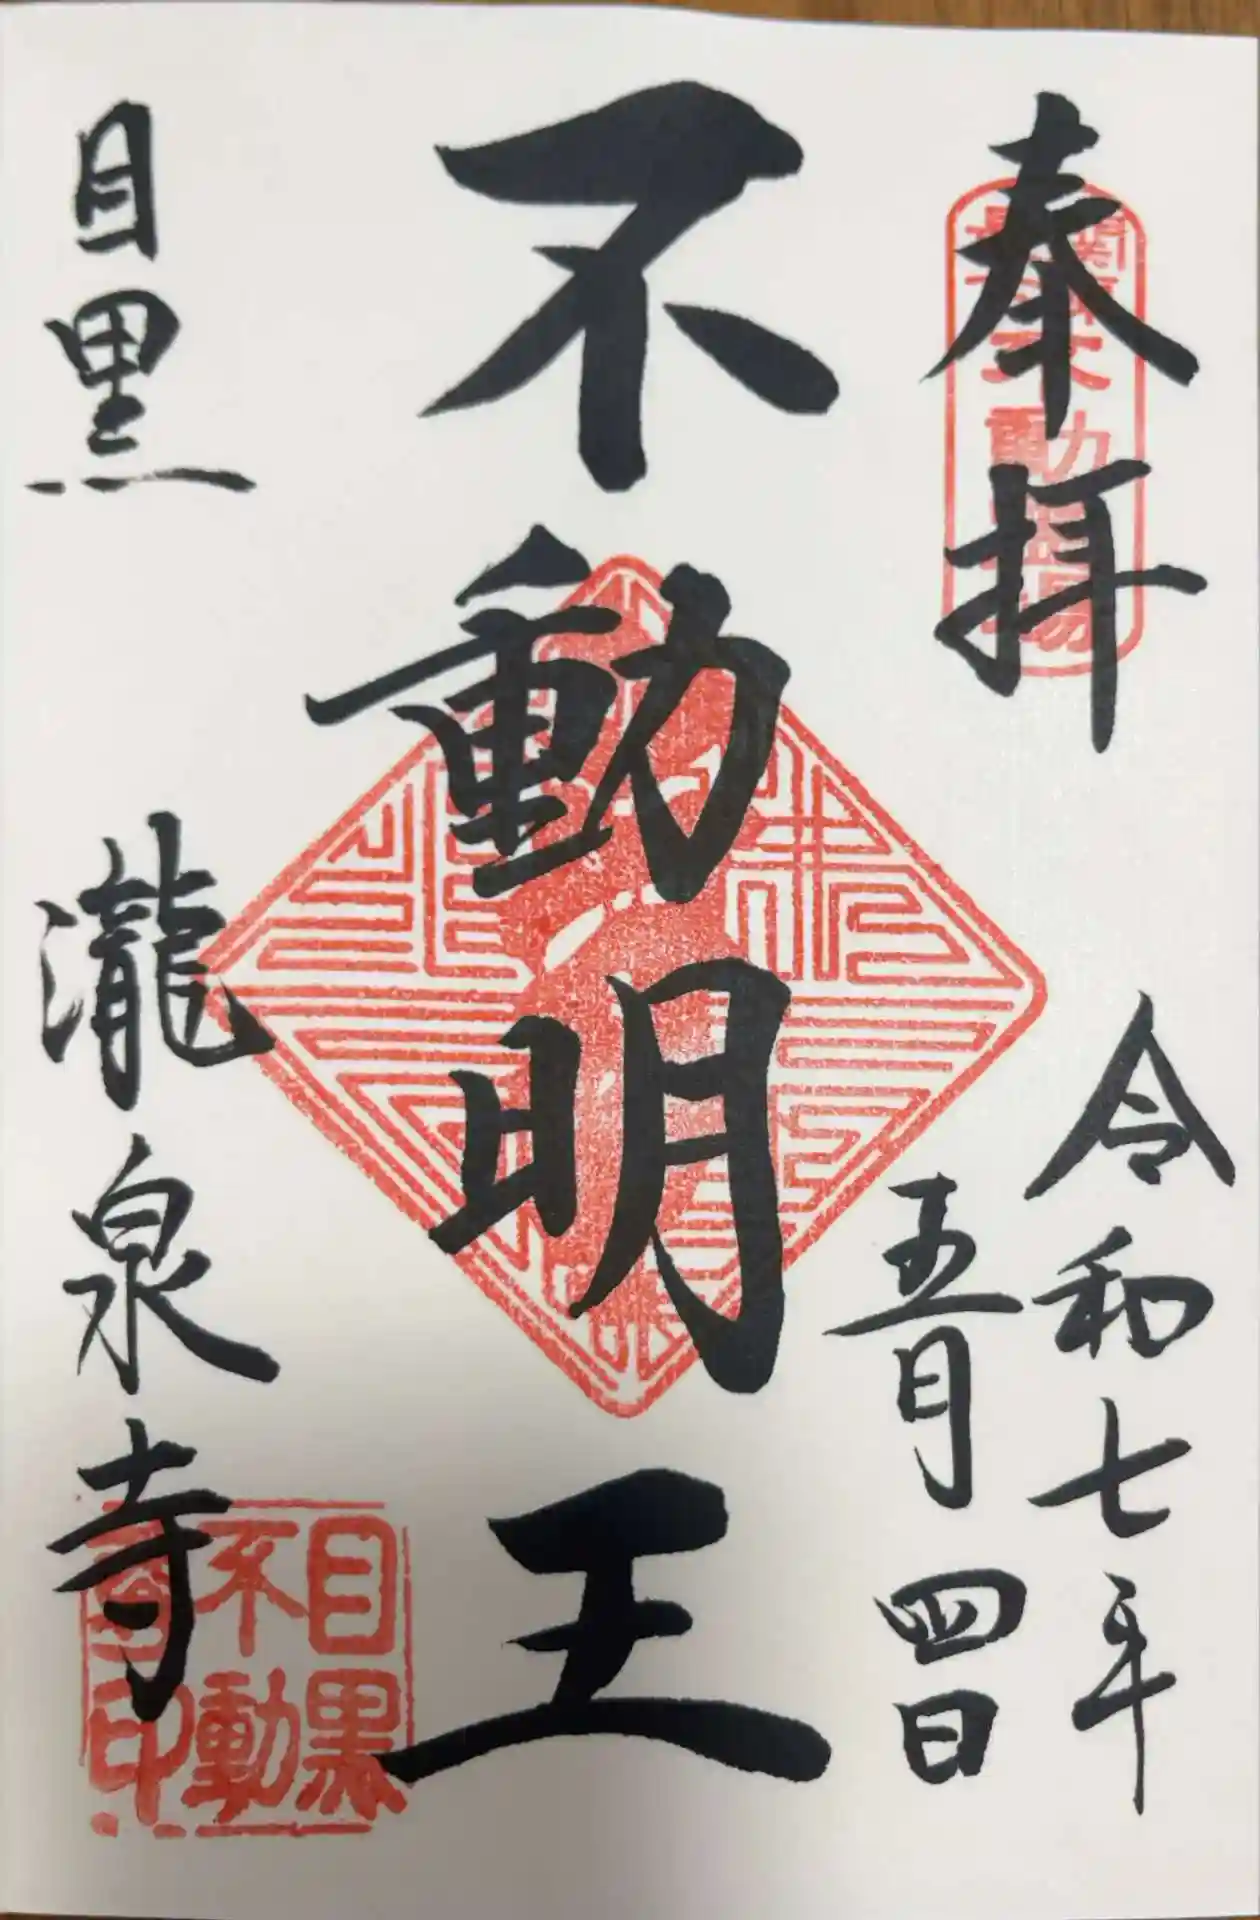 奉拝
令和七年
五月四日
不動明王
目黒 瀧泉寺
目黒
不動
印